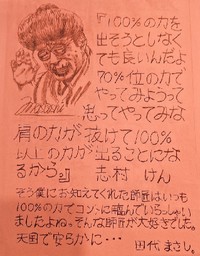 『100%の力を
出そうとしなく
ても良いんだよ
70%位の力で
やってみようって
思ってやってみな
肩の力が抜けて100%
以上の力が出ることにな
るから。』 志村 けん
そう僕にお知えてくれた師匠はいつも
100%の力でコントに臨んでいらっしゃい
ましたよね。そんな師匠が大好きでした。
天国で安らかに…
田代まさし。